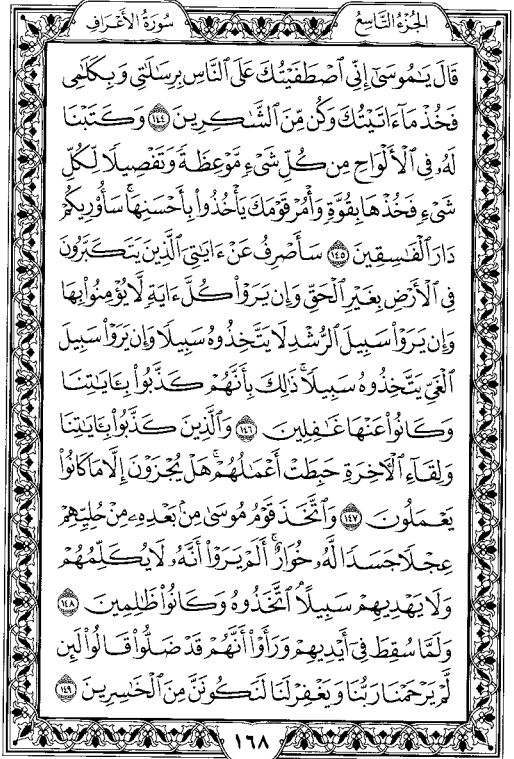 سُورَةُ الْأَعْرَافِ
الجُزْءُ التَّاسِعُ
قَالَ يَٰمُوسَىٰٓ إِنِّي ٱصْطَفَيْتُكَ عَلَى ٱلنَّاسِ بِرِسَٰلَٰتِي وَبِكَلَٰمِي
فَخُذْ مَآ ءَاتَيْتُكَ وَكُن مِّنَ ٱلشَّٰكِرِينَ ١٤٤ وَكَتَبْنَا
لَهُۥ فِي ٱلْأَلْوَاحِ مِن كُلِّ شَيْءٍ مَّوْعِظَةً وَتَفْصِيلًا لِّكُلِّ
شَيْءٍ فَخُذْهَا بِقُوَّةٍ وَأْمُرْ قَوْمَكَ يَأْخُذُوا۟ بِأَحْسَنِهَا ۚ سَأُو۟رِيكُمْ
دَارَ ٱلْفَٰسِقِينَ ١٤٥ سَأَصْرِفُ عَنْ ءَايَٰتِيَ ٱلَّذِينَ يَتَكَبَّرُونَ
فِي ٱلْأَرْضِ بِغَيْرِ ٱلْحَقِّ وَإِن يَرَوْا۟ كُلَّ ءَايَةٍ لَّا يُؤْمِنُوا۟ بِهَا
وَإِن يَرَوْا۟ سَبِيلَ ٱلرُّشْدِ لَا يَتَّخِذُوهُ سَبِيلًا وَإِن يَرَوْا۟ سَبِيلَ
ٱلْغَيِّ يَتَّخِذُوهُ سَبِيلًا ۚ ذَٰلِكَ بِأَنَّهُمْ كَذَّبُوا۟ بِـَٔايَٰتِنَا
وَكَانُوا۟ عَنْهَا غَٰفِلِينَ ١٤٦ وَٱلَّذِينَ كَذَّبُوا۟ بِـَٔايَٰتِنَا
وَلِقَآءِ ٱلْـَٔاخِرَةِ حَبِطَتْ أَعْمَٰلُهُمْ ۚ هَلْ يُجْزَوْنَ إِلَّا مَا كَانُوا۟
يَعْمَلُونَ ١٤٧ وَٱتَّخَذَ قَوْمُ مُوسَىٰ مِنۢ بَعْدِهِۦ مِنْ حُلِيِّهِمْ
عِجْلًا جَسَدًا لَّهُۥ خُوَارٌ ۚ أَلَمْ يَرَوْا۟ أَنَّهُۥ لَا يُكَلِّمُهُمْ
وَلَا يَهْدِيهِمْ سَبِيلًا ۘ ٱتَّخَذُوهُ وَكَانُوا۟ ظَٰلِمِينَ ١٤٨
وَلَمَّا سُقِطَ فِيٓ أَيْدِيهِمْ وَرَأَوْا۟ أَنَّهُمْ قَدْ ضَلُّوا۟ قَالُوا۟ لَئِن
لَّمْ يَرْحَمْنَا رَبُّنَا وَيَغْفِرْ لَنَا لَنَكُونَنَّ مِنَ ٱلْخَٰسِرِينَ ١٤٩
١٦٨